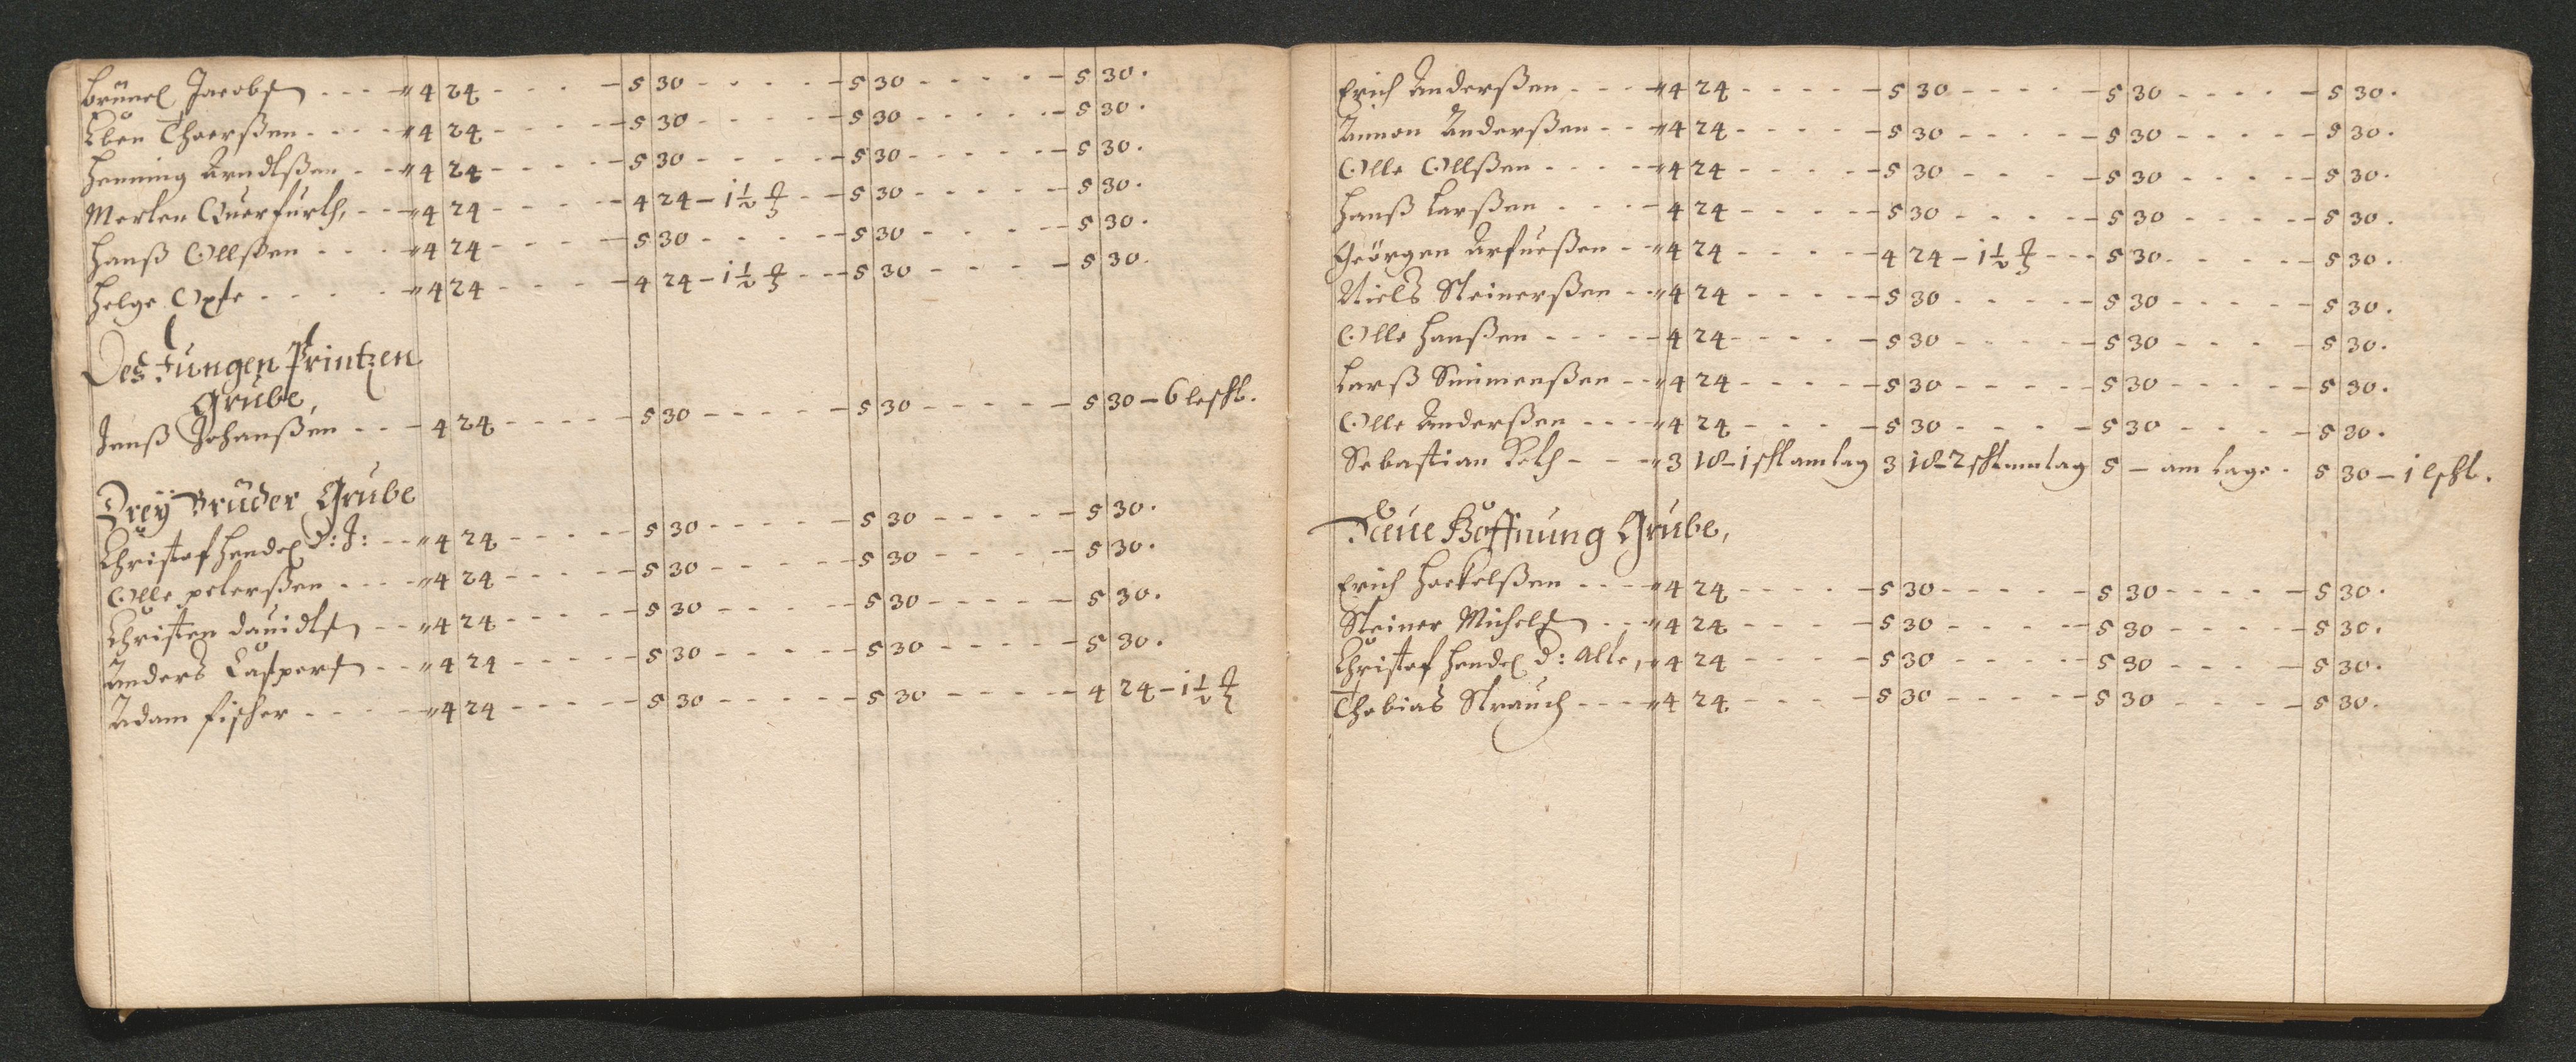 Brünel Jacobsen - - - " 4 24 - - - - 5 30 - - - - 5 30 - - - - 5 30.
Eben Thoerßen - - - " 4 24 - - - - 5 30 - - - - 5 30 - - - - 5 30.
Henning Arndtßen - - " 4 24 - - - - 5 30 - - - - 5 30 - - - - 5 30.
Merten Querfurth, - - " 4 24 - - - - 4 24 - 1½ - - 5 30 - - - - 5 30.
Hanß Ollßen - - - " 4 24 - - - - 5 30 - - - - 5 30 - - - - 5 30.
Helge Oxste - - - - " 4 24 - - - - 4 24 - 1½ - - 5 30 - - - - 5 30.
Des Jungen Printzen
Grube,
Jenß Johanßen - - - 4 24 - - - - 5 30 - - - - 5 30 - - - - 5 30 - 6 leschl.
Dreÿ Brüder Grube
Christof Hendel d: J: - - " 4 24 - - - - 5 30 - - - - 5 30 - - - - 5 30.
Olle peterßen - - - " 4 24 - - - - 5 30 - - - - 5 30 - - - - 5 30.
Christen davidtsen - - " 4 24 - - - - 5 30 - - - - 5 30 - - - - 5 30.
Anders Caspersen - - " 4 24 - - - - 5 30 - - - - 5 30 - - - - 5 30.
Adam fischer - - - - " 4 24 - - - - 5 30 - - - - 5 30 - - - - 4 24 - 1½
Erich Anderßen - - - " 4 24 - - - - 5 30 - - - - 5 30 - - - - 5 30.
Ammon Anderßen - - " 4 24 - - - - 5 30 - - - - 5 30 - - - - 5 30.
Olle Ollßen - - - - " 4 24 - - - - 5 30 - - - - 5 30 - - - - 5 30.
Hanß Larßen - - - - 4 24 - - - - 5 30 - - - - 5 30 - - - - 5 30.
Geörgen Arfueßen - - " 4 24 - - - - 4 24 - 1½ - - - 5 30 - - - - 5 30.
Niels Steinerßen - - " 4 24 - - - - 5 30 - - - - 5 30 - - - - 5 30.
Olle Hanßen - - - - 4 24 - - - - 5 30 - - - - 5 30 - - - - 5 30.
Larß Simmenßen - - " 4 24 - - - - 5 30 - - - - 5 30 - - - - 5 30.
Olle Anderßen - - - " 4 24 - - - - 5 30 - - - - 5 30 - - - - 5 30.
Sebastian Roth - - - " 3 18 - 1 schl am tag 3 18 - 2 schl am tag 5 - am tage - 5 30 - 1 lschl.
Neue Hoffnung Grube,
Erich Hockelßen - - - " 4 24 - - - - 5 30 - - - - 5 30 - - - - 5 30.
Steiner Michelsen - - - " 4 24 - - - - 5 30 - - - - 5 30 - - - - 5 30.
Christof Hendel d: Alte, " 4 24 - - - - 5 30 - - - - 5 30 - - - - 5 30.
Thobias Strauch - - - " 4 24 - - - - 5 30 - - - - 5 30 - - - - 5 30.